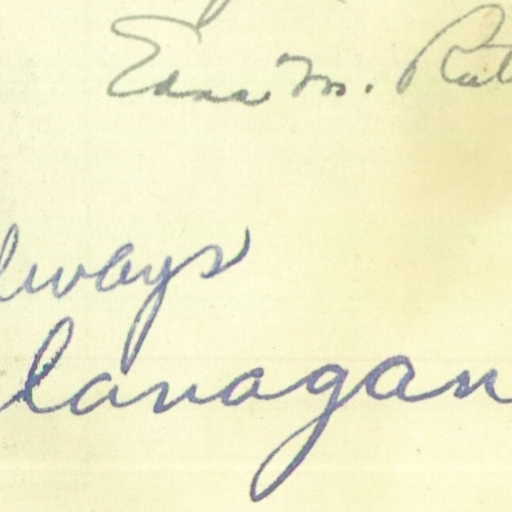 Edna M. Rut
lways
lanagan